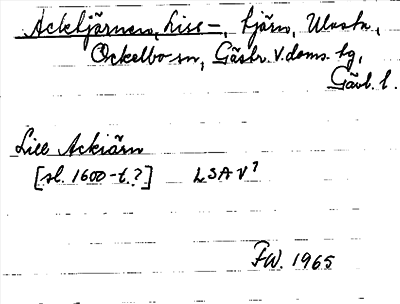 Acktjärnen, Lill-, tjärn, Ulvsta,
Ockelbo sn, Gästr. V. doms. tg,
Gävl. l.
Lill Ackiärn
[sl. 1600-t.?] LSA V?
FW. 1965